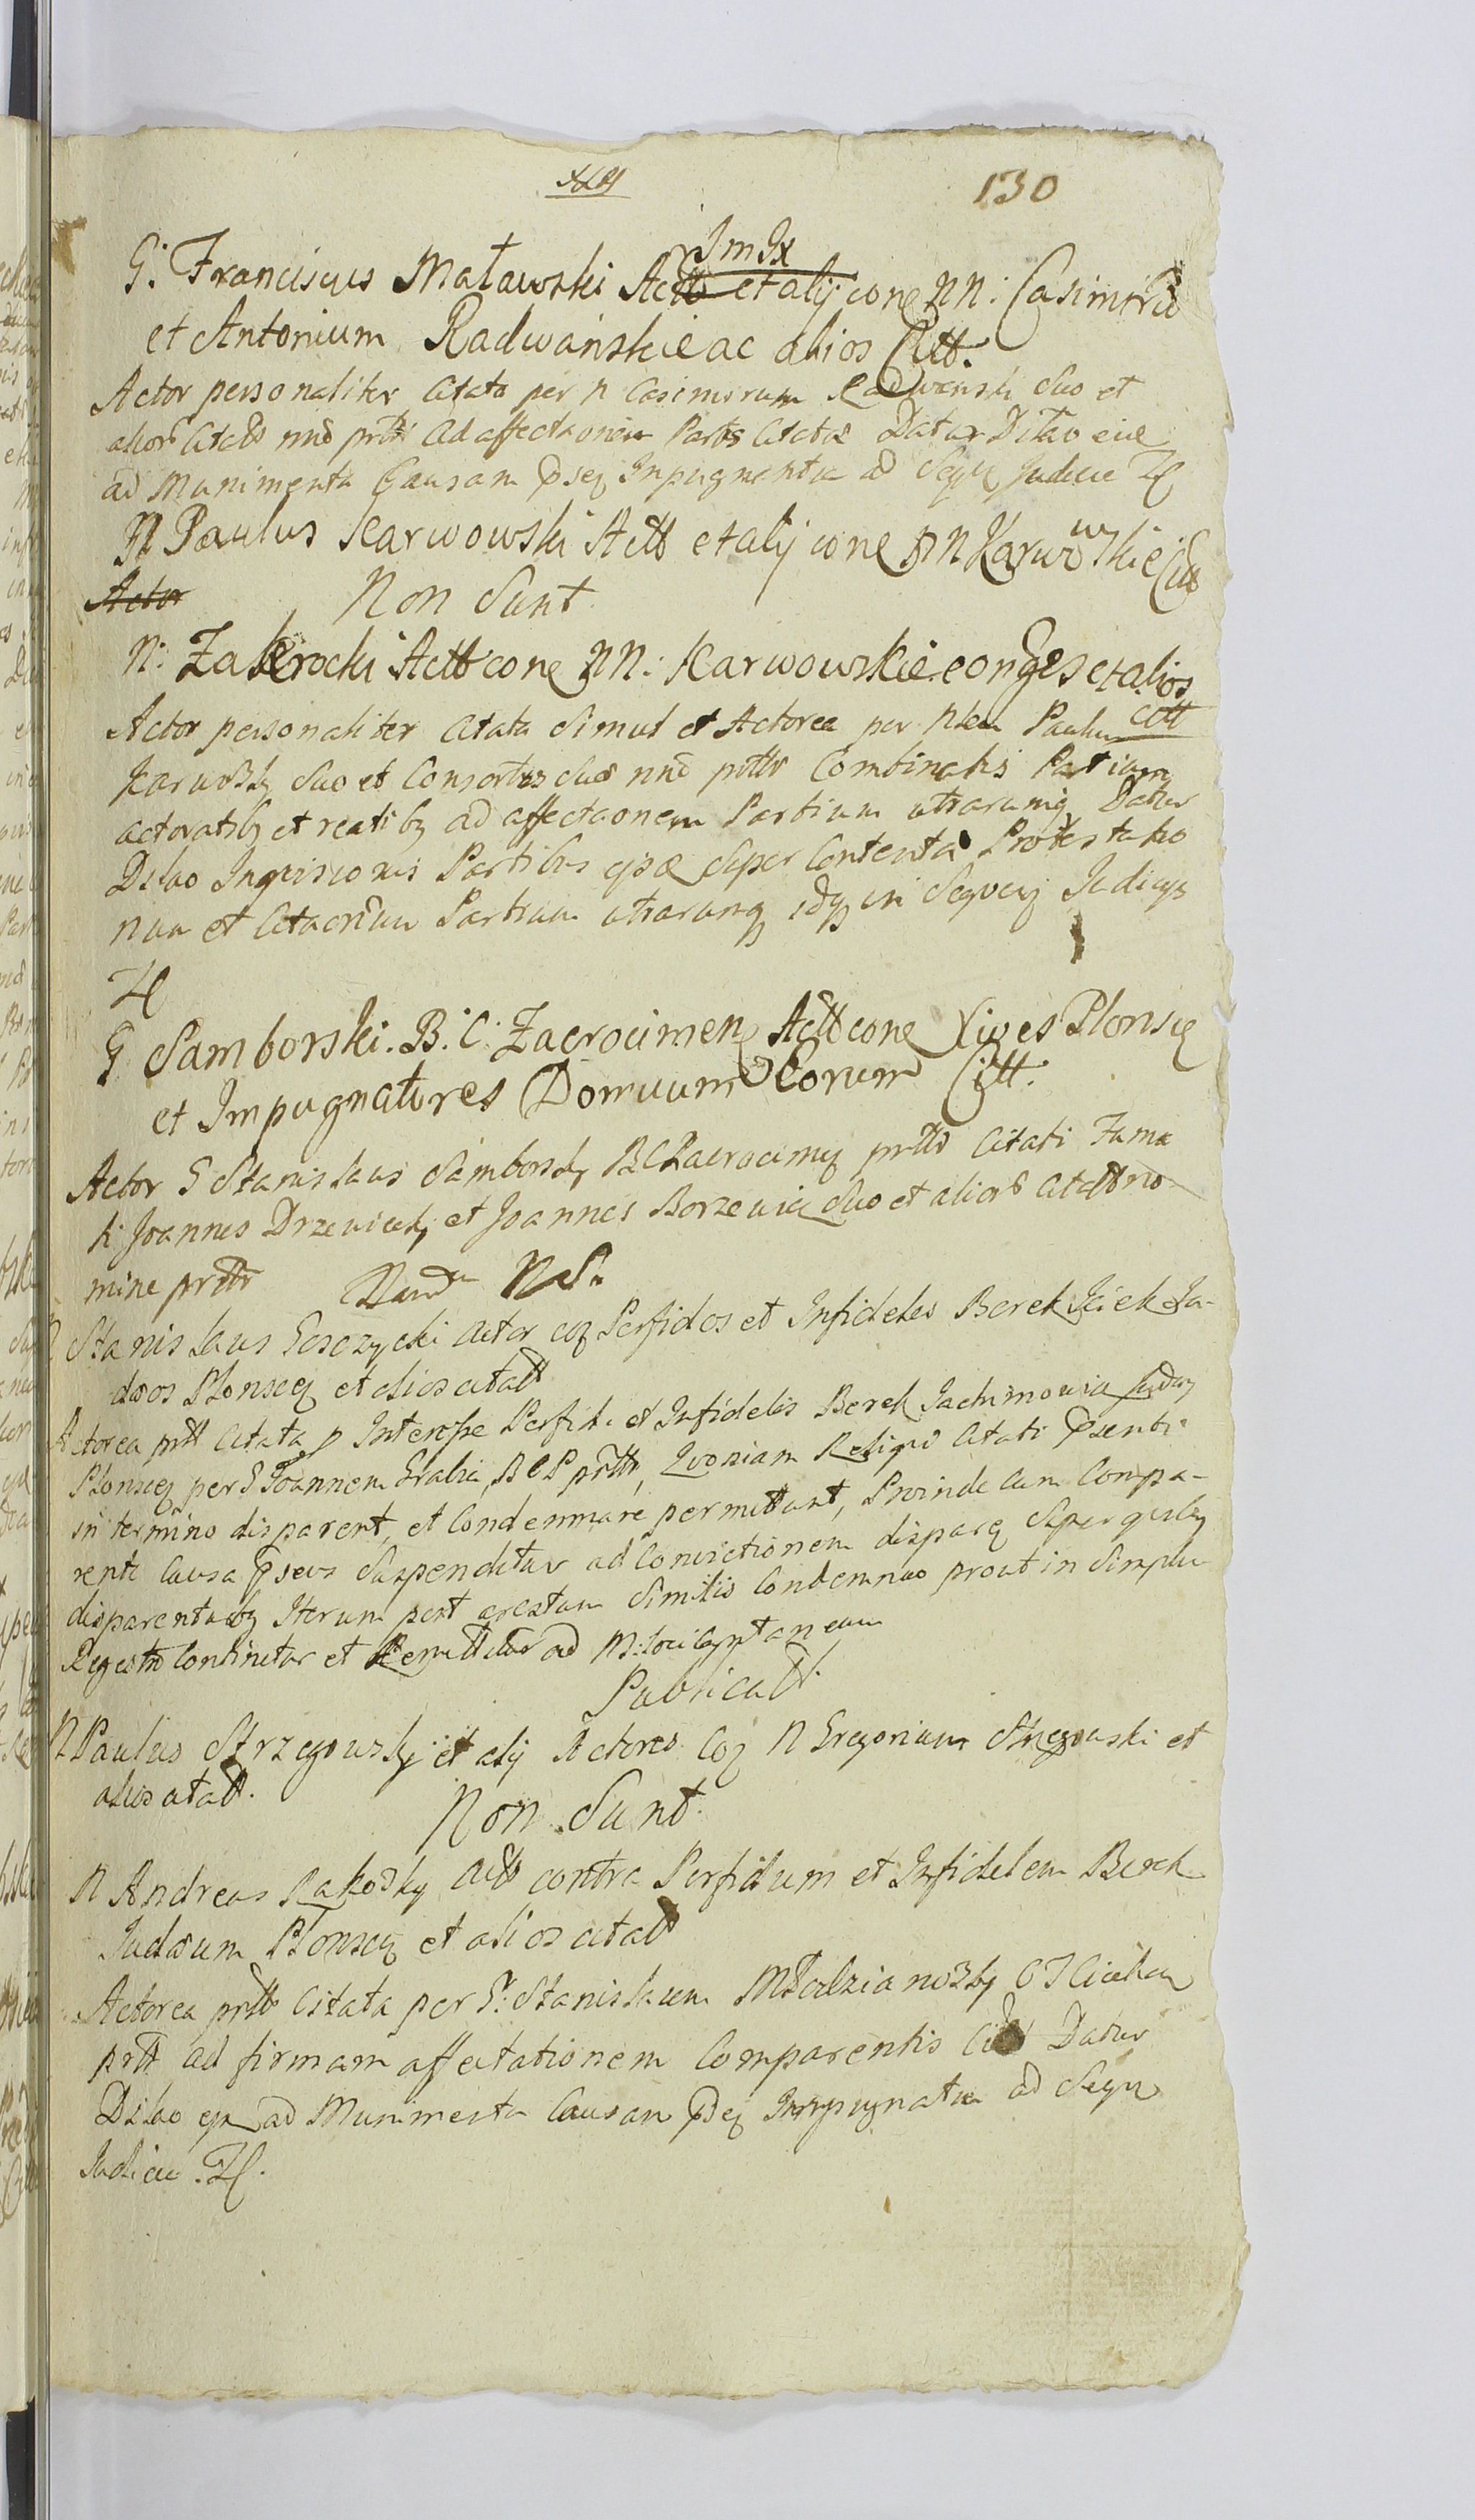 130
Jm Jx
G: Franciscus Matawski Actt et alij cone NN: Casimirū
et Antonium Radwańskie ac alios Citt.
Actor personaliter Citata per N Casimirum Radwanski Suo et
alior Citat nnō prtt ad affectaonem Partis Citatæ Datur Dilao eide
ad Munimenta Causam Impugnantia ad Sequ Judicia
N Paulus Karwowski Actt et alij cone NN Karwowskie Citt
Actor Non Sunt
N: Zakrocki Actt cone NN: Karwowskie conges et alios
Citt
Actor personaliter Citata Simul et Actorea per Paulum
Karwosky Suo et Consortis Suæ nnō prttr Combinatis Partium
actoratibq et reatibq ad affectaonem Partium utrarumq Datur
Dilao Inquisionis Partibus ipsæ Super Contenta Protestatio
num et Citaonum Partium utrarumq idq in Sequenq Judicijs
G Samborski. B. C. Zacrocimen Actt cone Cives Plonscq
et Impugnatores Domuum Eorum Citt.
Actor G Stanislaus Samborsky BC Zacrocimq prtt Citati Fama
ti Joannes Drzewiecky et Joannes Borzewicz Suo et alior Citatt no
mine prttr N S.
N Stanislaus Gosczycki Actor coq Perfidos et Infideles Berek Iciek Ju-
dæos Plonscq et alios citatt
Actorea prtt Citata p Interesse Perfidi et Infidelis Berek Jachimowicz Judæi
Plonscq per G Joannem Gralia BCP prttr, Quoniam Reliqui Citati
in termino disparent, et Condemnare permittunt, Proinde Cum Compa-
renti Causa Suspenditur ad Convictionem disparq Super quibq
disparentibq Iterum post arestum Similis Condemnao prout in Simplici
Regestro Continetur et Remittitur ad M: loci Capitaneum
Publicatt.
N Paulus Strzegowsky et alij Actores Coq N Gregorium Strzegowski et
alios citatt.
Non Sunt.
N Andreas Rakosky Actt contra Perfidum et Infidelem Berek
Judæum Plonscq et alios citatt
Actorea prtt Citata per G: Stanislaum Młodzianosky
prtt ad firmam affectationem Comparentis Citt Datur
Dilao ad Munimenta Causam Impugnatia ad Sequ
Judicia